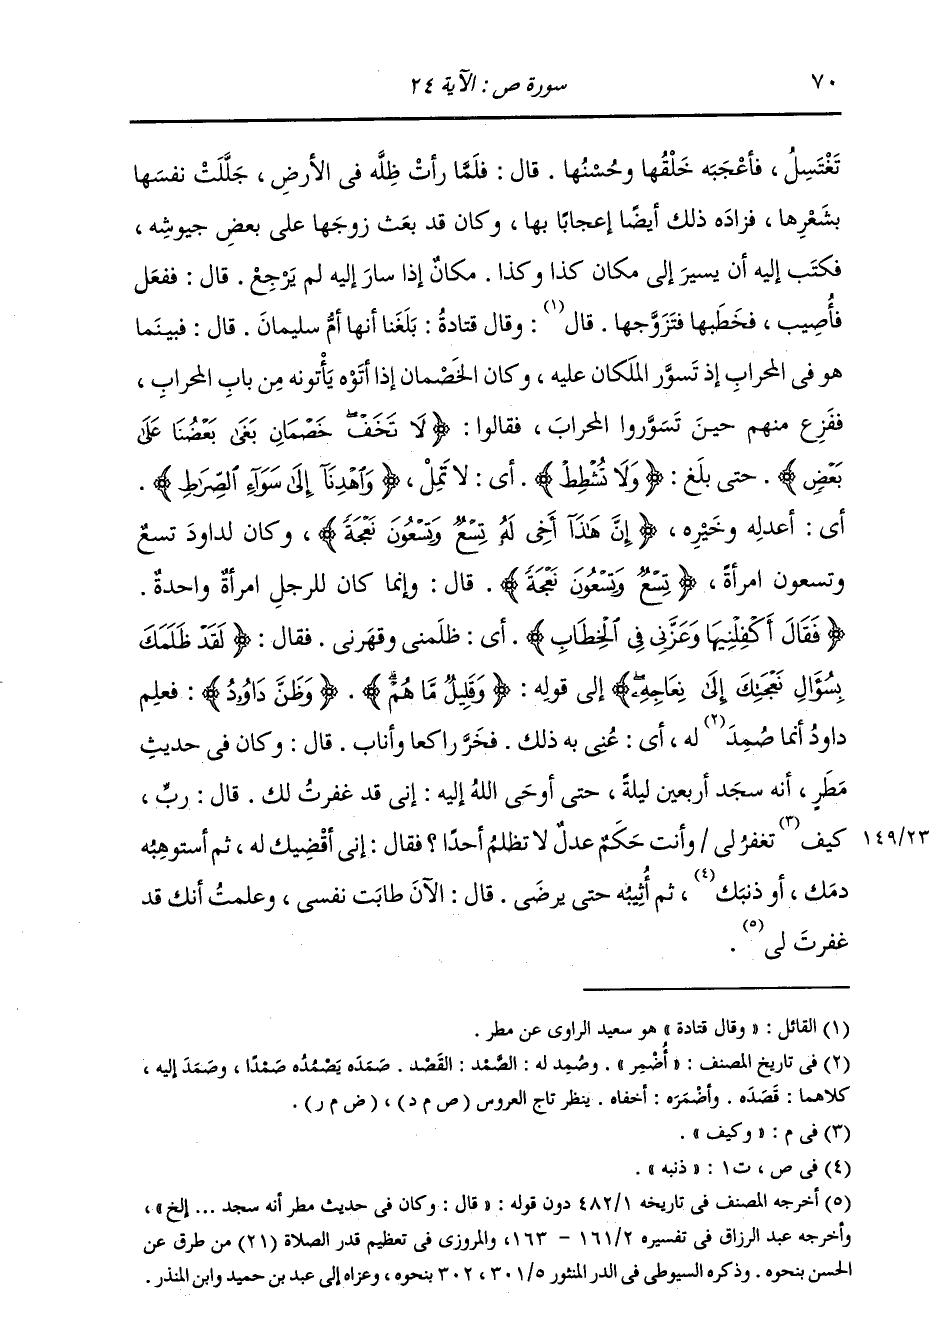 ٧٠
سورة ص : الآية ٢٤
تَغْتَسِلُ ، فأعْجَبَه خَلْقُها وحُسْنُها . قال : فلَمَّا رأتْ ظِلَّه فى الأرضِ ، جَلَّلَتْ نفسَها
بشَعْرِها ، فزادَه ذلك أيضًا إعجابًا بها ، وكان قد بعَث زوجَها على بعضِ جيوشِه ،
فكتَب إليه أن يسيرَ إلى مكان كذا وكذا . مكانٌ إذا سارَ إليه لم يَرْجِعْ . قال : ففعَل
فأُصِيب ، فخَطَبها فتَزَوَّجها . قال(١) : وقال قتادةُ : بَلَغَنا أنها أمُّ سليمانَ . قال : فبينَما
هو فى المحرابِ إذ تَسوَّر الملَكان عليه ، وكان الخَصْمان إذا أتَوْه يَأْتونه مِن بابِ المحرابِ ،
ففَزِع منهم حينَ تَسَوَّروا المحرابَ ، فقالوا : ﴿ لَا تَخَفْۖ خَصْمَانِ بَغَىٰ بَعْضُنَا عَلَىٰ
بَعْضٍ ﴾ . حتى بلَغ : ﴿ وَلَا تُشْطِطْ ﴾ . أى : لا تَمِلْ ، ﴿ وَٱهْدِنَآ إِلَىٰ سَوَآءِ ٱلصِّرَٰطِ ﴾ .
أى : أعدلِه وخَيْرِه ، ﴿ إِنَّ هَٰذَآ أَخِى لَهُۥ تِسْعٌ وَتِسْعُونَ نَعْجَةً ﴾ ، وكان لداودَ تسعٌ
وتسعون امرأةً ، ﴿ تِسْعٌ وَتِسْعُونَ نَعْجَةً ﴾ . قال : وإنما كان للرجلِ امرأةٌ واحدةٌ .
﴿ فَقَالَ أَكْفِلْنِيهَا وَعَزَّنِى فِى ٱلْخِطَابِ ﴾ . أى : ظلَمنى وقهَرنى . فقال : ﴿ لَقَدْ ظَلَمَكَ
بِسُؤَالِ نَعْجَتِكَ إِلَىٰ نِعَاجِهِۦۖ ﴾ إلى قولِه : ﴿ وَقَلِيلٌ مَّا هُمْۗ ﴾ . ﴿ وَظَنَّ دَاوُۥدُ ﴾ : فعلِم
داودُ أنما صُمِدَ(٢) له ، أى : عُنِى به ذلك . فخَرَّ راكعا وأناب . قال : وكان فى حديثِ
مَطَرٍ ، أنه سجَد أربعين ليلةً ، حتى أوحَى اللهُ إليه : إنى قد غفرتُ لك . قال : ربِّ ،
كيف(٣) تغفرُ لى / وأنت حَكَمٌ عدلٌ لا تظلمُ أحدًا ؟ فقال : إنى أقْضِيك له ، ثم أستوهِبُه
١٤٩/٢٣
دمَك ، أو ذنبَك(٤) ، ثم أُثِيبُه حتى يرضَى . قال : الآنَ طابَت نفسى ، وعلمتُ أنك قد
غفرتَ لى(٥) .
(١) القائل : « وقال قتادة » هو سعيد الراوى عن مطر .
(٢) فى تاريخ المصنف : « أُضْمِر » . وصُمِد له : الصَّمْد : القَصْد . صَمَدَه يَصْمُدُه صَمْدًا ، وصَمَدَ إليه ،
كلاهما : قَصَدَه . وأضْمَرَه : أخفاه . ينظر تاج العروس ( ص م د ) ، ( ض م ر ) .
(٣) فى م : « وكيف » .
(٤) فى ص ، ت١ : « ذنبه » .
(٥) أخرجه المصنف فى تاريخه ٤٨٢/١ دون قوله : « قال : وكان فى حديث مطر أنه سجد ... إلخ » ،
وأخرجه عبد الرزاق فى تفسيره ١٦١/٢ - ١٦٣، والمروزى فى تعظيم قدر الصلاة (٢١) من طرق عن
الحسن بنحوه . وذكره السيوطى فى الدر المنثور ٣٠١/٥ ، ٣٠٢ بنحوه ، وعزاه إلى عبد بن حميد وابن المنذر .